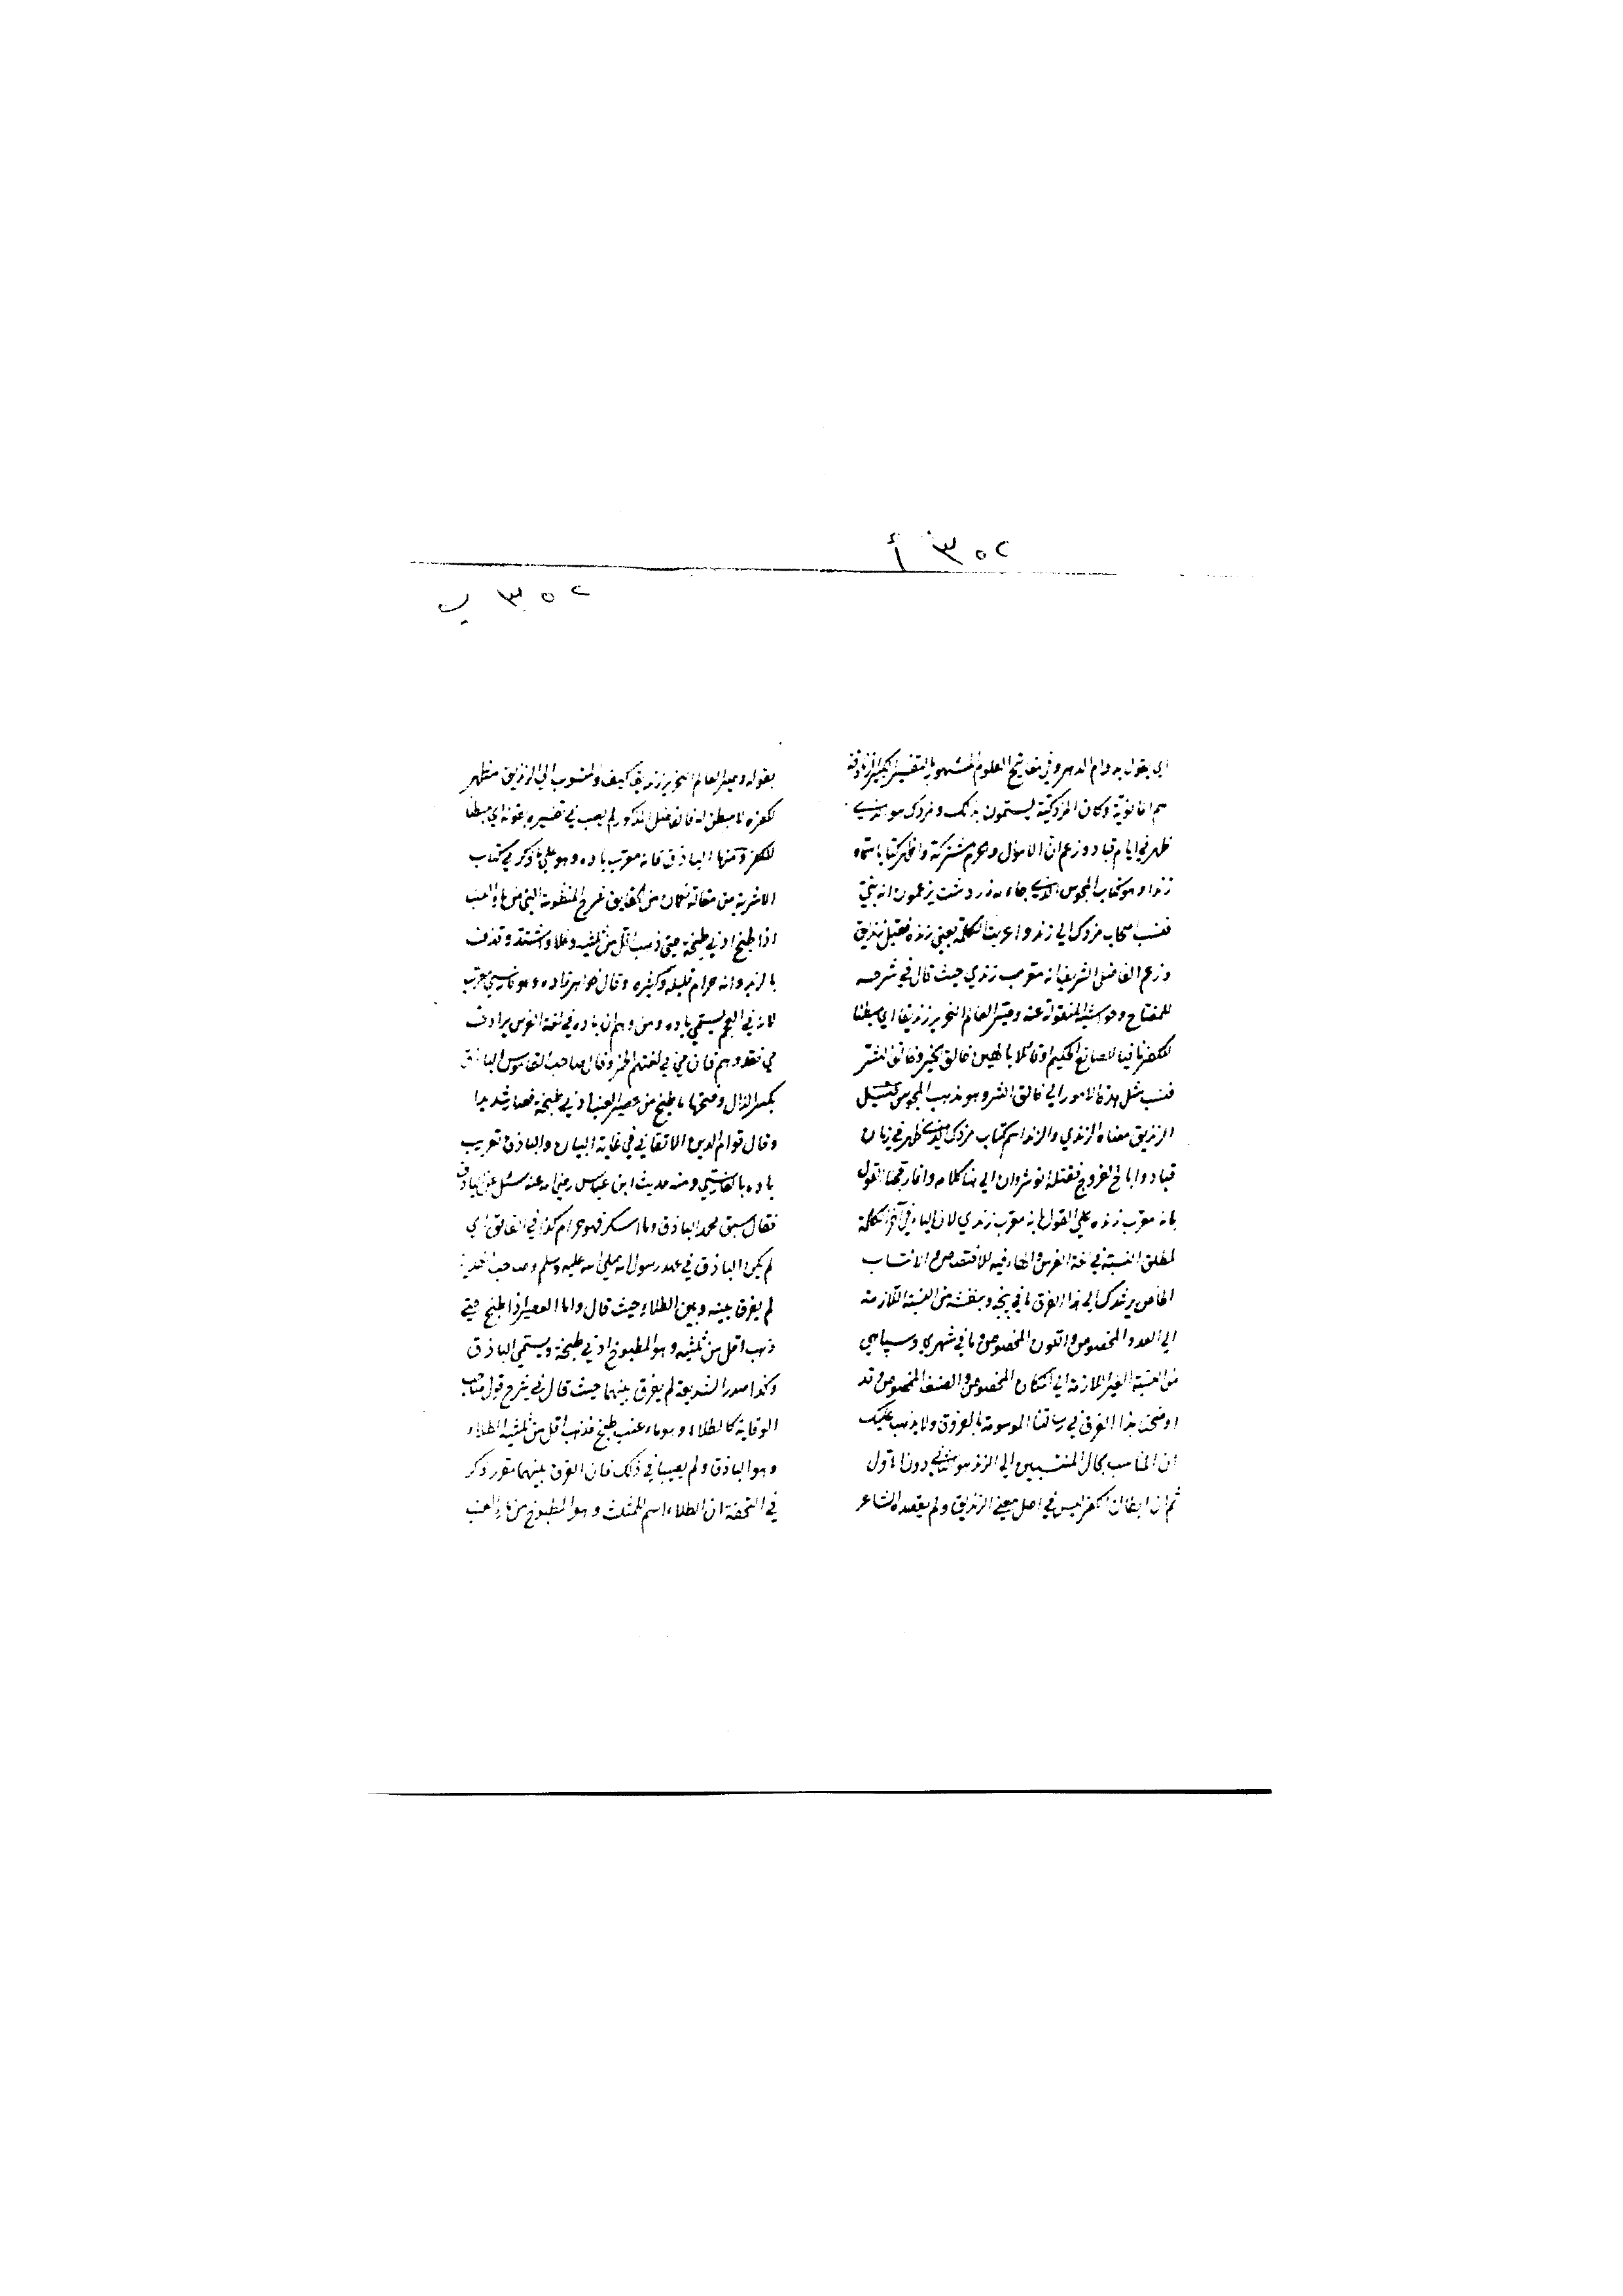 ٣٥٢ أ
اي يقول بدوام الدهر وفي مفاتيح العلوم المشهور بالتفسير الكبير الزنادقة
هم المانوية وكان المزدكية يسمون بذلك ومزدك هو الذي
ظهر في ايام قباد وزعم ان الاموال والحرم مشتركة واظهر كتابا سماه
زندا وهو كتاب المجوس الذي جاء به زردشت يزعمون انه نبي
فنسب اصحاب مزدك الي زند واعربت الكلمة يعني زنده فقيل زنديق
وزعم الفاضل الشريف انه معرب زندي حيث قال في شرحه
للمفتاح وحواشيه المنقولة عنه وصير العالم النحرير زنديقا اي مبطنا
للكفر نافيا للصانع الحكيم او قائلا بالهين خالق الخير وخالق الشر
فنسب مثل هذه الامور الي خالق الشر وهو مذهب المجوس فقيل
الزنديق معناه الزندي والزند اسم كتاب مزدك الذي ظهر في زمان
قباد واباح الفروج فقتله انوشروان الي هنا كلامه وانما رجحنا القول
بانه معرب زنده علي القول بانه معرب زندي لان الياء في آخر الكلمة
لمطلق النسبة في لغة الفرس والهاء فيه للاختصاص والانتساب
الخاص يرشدك الي هذا الفرق ما في پنجه وبنفشه من النسبة اللازمة
الي العدد المخصوص واللون المخصوص وما في شهري وسپاهي
من النسبة الغير اللازمة الي المكان المخصوص والصنف المخصوص وقد
اوضحنا هذا الفرق في رسالتنا الموسومة بالفروق ولا يذهب عليك
ان المناسب بحال المنتسبين الي الزند هو الثاني دون الاول
ثم ان ابطان الكفر ليس في اصل معني الزنديق ولم يقصده الشاعر
٣٥٢ ب
بقوله وصير العالم النحرير زنديقا كيف والمنسوب الي الزنديق مظهر
لكفره لا مبطن له فالفاضل المذكور لم يصب في تفسيره بقوله اي مبطنا
للكفر ومنها الباذق فانه معرب باده وهو علي ما ذكر في كتاب
الاشربة من مقالة نعمان من الحقايق شرح المنظومة الني من ماء العنب
اذا طبخ ادني طبخة حتي ذهب اقل من ثلثيه وغلا واشتد وقذف
بالزبد وانه حرام قليله وكثيره وقال خواهرزاده وهو فارسي معرب
لانه في العجم يسمي باده ومن وهم ان باده في لغة الفرس يرادف
مي فقد وهم فان مي في لغتهم الخمر وقال صاحب القاموس الباذق
بكسر الذال وفتحها ما طبخ من عصير العنب ادني طبخة فصار شديدا
وقال قوام الدين الاتقاني في غاية البيان والباذق تعريب
باده بالفارسي ومنه حديث ابن عباس رضي الله عنه سئل عن الباذق
فقال سبق محمد الباذق وما اسكر فهو حرام كذا في الفائق اي
لم يكن الباذق في عهد رسول الله صلي الله عليه وسلم وصاحب
لم يفرق بينه وبين الطلاء حيث قال واما العصير اذا طبخ حتي
ذهب اقل من ثلثيه وهو المطبوخ ادني طبخة ويسمي الباذق
وكذا صدر الشريعة لم يفرق بينهما حيث قال في شرح قول صاحب
الوقاية كالطلاء وهو ماء عنب طبخ فذهب اقل من ثلثيه الطلاء
وهو الباذق ولم يصيبا في ذلك فان الفرق بينهما مقرر ذكر
في التحفة ان الطلاء اسم للمثلث وهو المطبوخ من ماء العنب